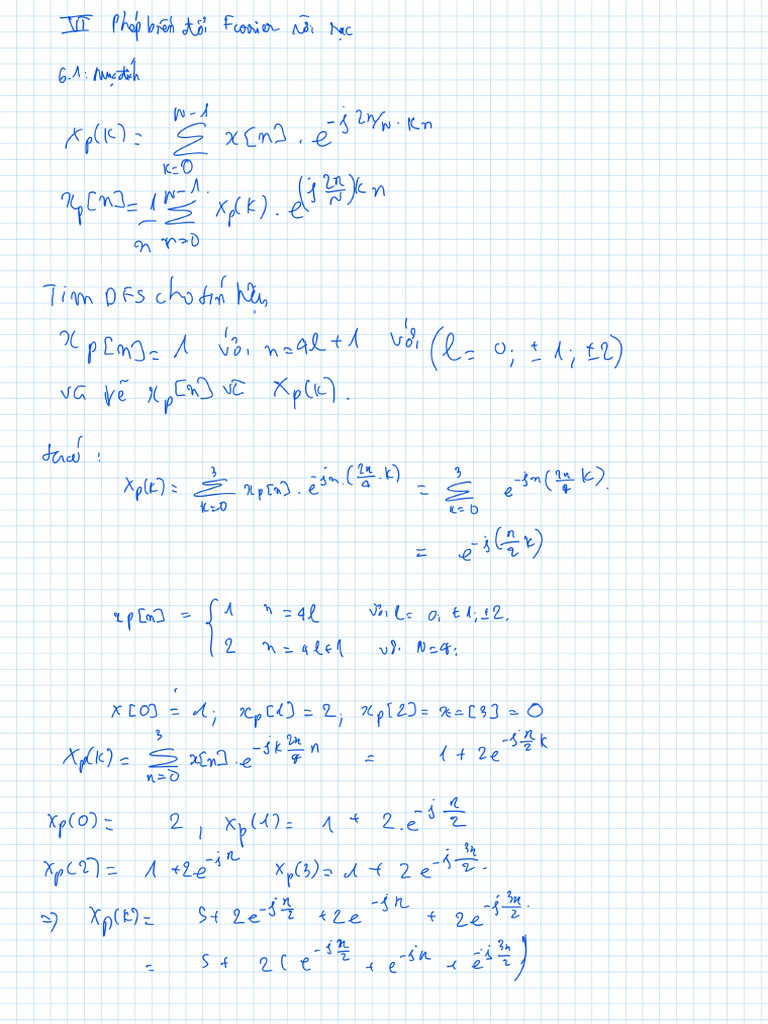 VI Phép biến đổi Fourier rời rạc
6.1: Mục đích
Xp(k) = Σ_{k=0}^{N-1} x[n] . e^{-j 2π/N . kn}
xp[n] = 1/n Σ_{n=0}^{N-1} Xp(k) . e^{(j 2π/N)kn}
Tìm DFS cho tín hiệu
xp[n] = 1 với n = 4l+1 với (l = 0; ±1; ±2)
và vẽ xp[n] và Xp(k).
Xp(k) = Σ_{k=0}^{3} xp[n] . e^{-jn.(2π/4 . k)} = Σ_{k=0}^{3} e^{-jn(2π/4 k)}.
= e^{-j(π/2 k)}
xp[n] = { 1 n = 4l với l = 0, ±1, ±2.
2 n = 4l+1 với N=4.
x[0] = 1; xp[1] = 2; xp[2] = x=[3] = 0
Xp(k) = Σ_{n=0}^{3} x[n] . e^{-jk 2π/4 n} = 1 + 2e^{-jπ/2 k}
Xp(0) = 2, Xp(1) = 1 + 2.e^{-j π/2}
Xp(2) = 1 + 2e^{-jπ} Xp(3) = 1 + 2e^{-j 3π/2}.
=> Xp(k) = 5 + 2e^{-jπ/2} + 2e^{-jπ} + 2e^{-j 3π/2}
= 5 + 2(e^{-jπ/2} + e^{-jπ} + e^{-j 3π/2})